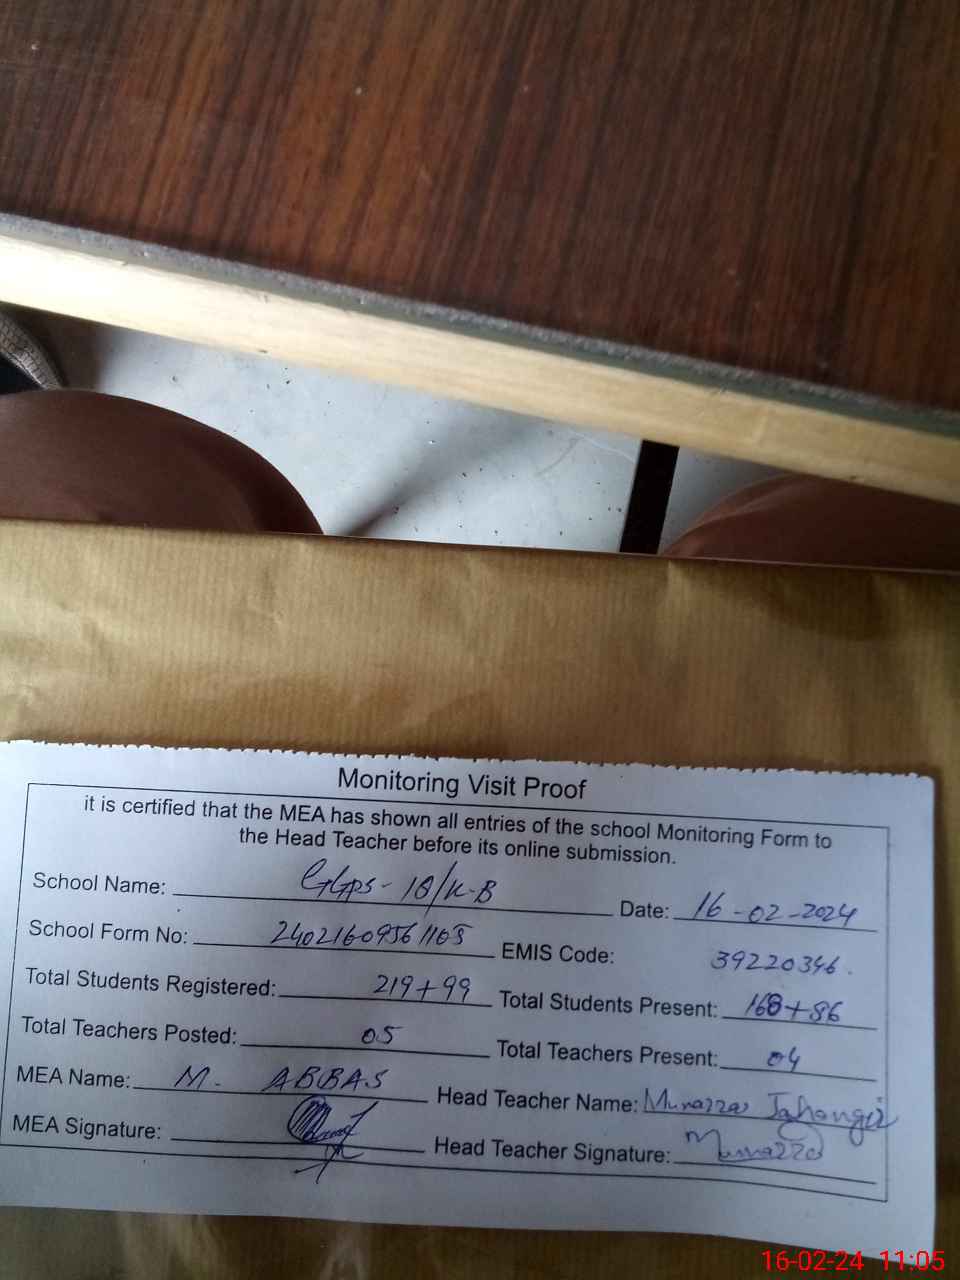 Monitoring Visit Proof
it is certified that the MEA has shown all entries of the school Monitoring Form to
the Head Teacher before its online submission.
School Name: GGPS - 18/K-B Date: 16-02-2024
School Form No: 24021609561103 EMIS Code: 39220346.
Total Students Registered: 219+99 Total Students Present: 168+86
Total Teachers Posted: 05 Total Teachers Present: 04
MEA Name: M. ABBAS Head Teacher Name: Munazza Jahangir
MEA Signature: Head Teacher Signature: Munazza
16-02-24 11:05